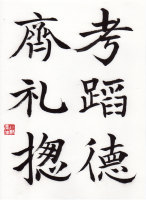 考蹈德
齊礼揔